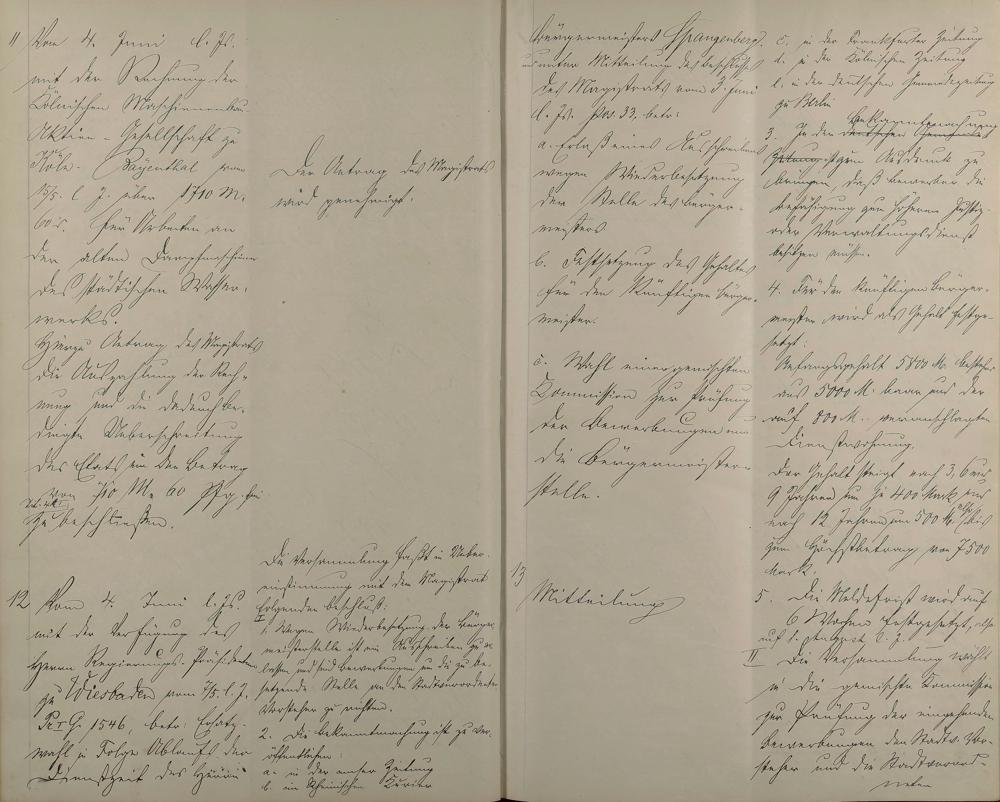 11 Vom 4. Juni l. Js.
mit der Rechnung der
Kölnischen Maschinenbau-
Aktien-Gesellschaft zu
Köln-Bayenthal vom
15/5. l. J. über 1710 M.
60 für Arbeiten an
der alten Dampfmaschine
des städtischen Wasser-
werks.
Hierzu Antrag des Magistrats
die Auszahlung der Rech-
nung und die dadurch be-
dingte Ueberschreitung
des Etats um den Betrag
von 710 M. 60 Pfg.
zu beschließen.
Der Antrag des Magistrats
wird genehmigt.
12 Vom 4. Juni l. Js.
mit der Verfügung des
Herrn Regierungs-Präsidenten
zu Wiesbaden vom 7/5. l. J.
Pr. I. G. 1546, betr: Ersatz-
wahl in Folge Ablaufs der
Dienstzeit des Herrn
Die Versammlung faßt in Ueber-
einstimmung mit dem Magistrat
folgenden Beschluß:
I
1. Wegen Wiederbesetzung der Bürger-
meisterstelle ist ein Ausschreiben zu er-
lassen und sind Bewerbungen um die zu be-
setzende Stelle an den Stadtverordneten
Vorsteher zu richten.
2. Die Bekanntmachung ist zu ver-
öffentlichen:
a. in der Emser Zeitung
b. im Rheinischen Kurier
Bürgermeisters Spangenberg,
und unter Mitteilung des Beschlusses
des Magistrats vom 3. Juni
l. Js. Pos. 33. betr:
a. Erlaß eines Ausschreibens
wegen Wiederbesetzung
der Stelle des Bürger-
meisters
b. Festsetzung des Gehaltes
für den künftigen Bürger-
meister.
c. Wahl einer gemischten
Commission zur Prüfung
der Bewerbungen um
die Bürgermeister-
stelle.
13 Mitteilung
c. in der Frankfurter Zeitung
d. in der Kölnischen Zeitung
e. in der deutschen Gemeindezeitung
zu Berlin
3. In der Bekanntmachung
deutschen Gemeinde
Zeitung ist zum Ausdruck zu
bringen, daß Bewerber die
Befähigung zum höheren Justiz-
oder Verwaltungsdienst
besitzen müssen.
4. Für den künftigen Bürger-
meister wird als Gehalt festge-
setzt:
Anfangsgehalt 5800 M. bestehend
aus 5000 M. baar und der
auf 800 M. veranschlagten
Dienstwohnung.
Der Gehalt steigt nach 3, 6 und
9 Jahren um je 400 Mark und
nach 12 Jahren um 500 M. also bis
zum Höchstbetrag von 7500
Mark.
5. Die Meldefrist wird auf
6 Wochen festgesetzt, also
auf 1. August l. J.
II Die Versammlung wählt
in die gemischte Commission
zur Prüfung der eingehenden
Bewerbungen den Stadtv. Vor-
steher und die Stadtverord-
neten